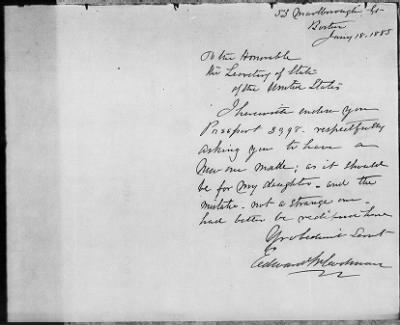 53 Marlborough St
Boston
Jany 18. 1885
To the Honorable
the Secretary of State
of the United States
I herewith enclose you
Passport 3998. respectfully
asking you to have a
new one made; as it should
be for my daughter - and the
mistake - not a strange one -
had better be rectified here
Yr obedient Servt
Edward